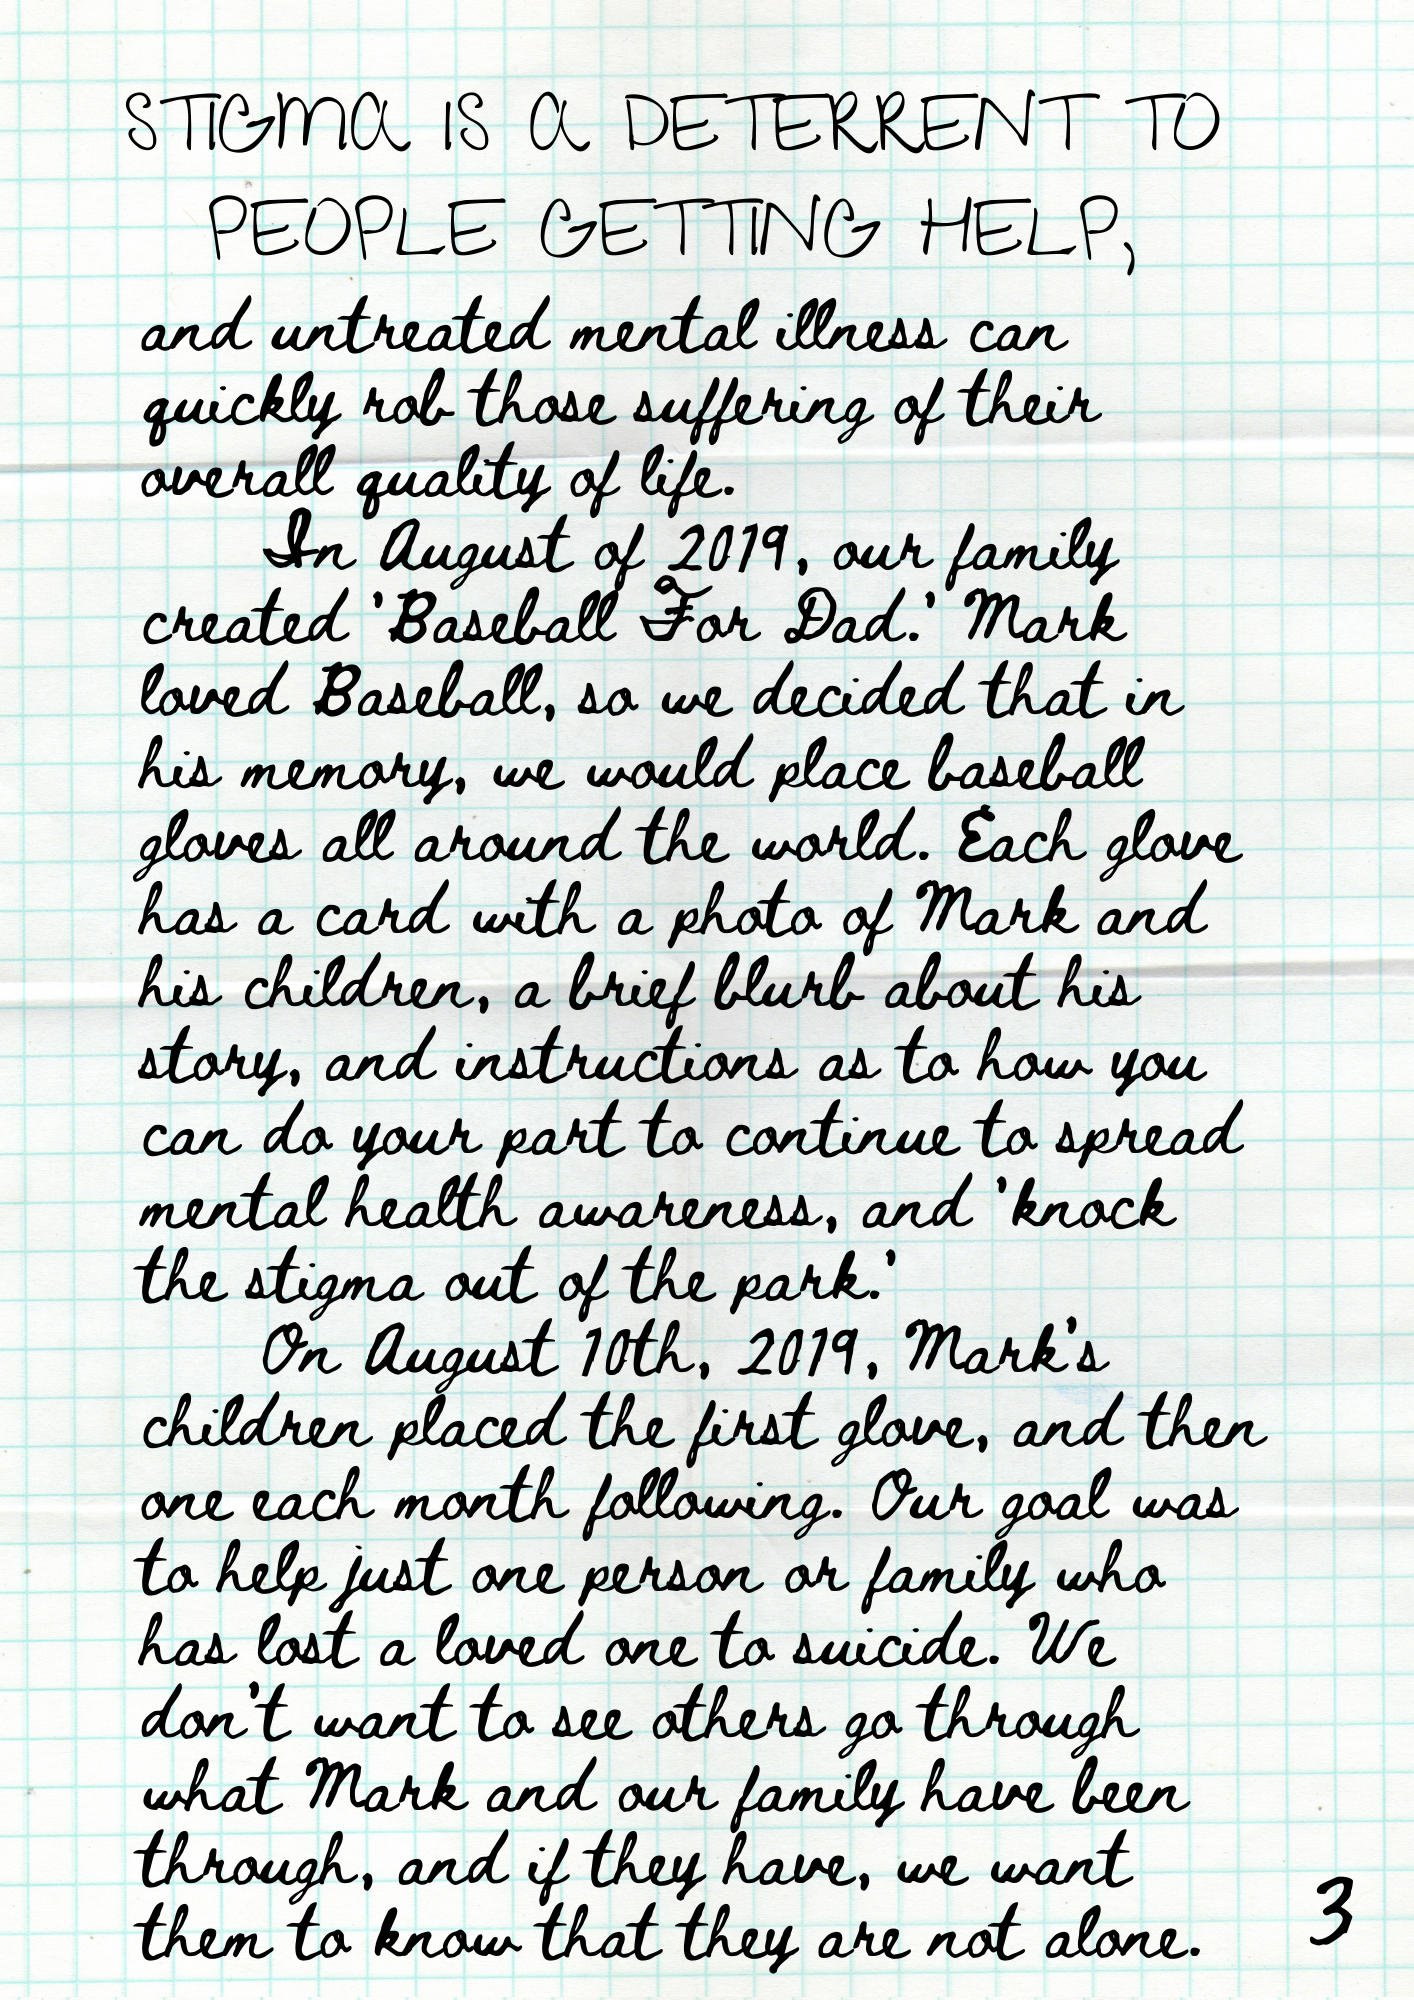 STIGMA IS A DETERRENT TO
PEOPLE GETTING HELP,
and untreated mental illness can
quickly rob those suffering of their
overall quality of life.
In August of 2019, our family
created 'Baseball For Dad.' Mark
loved Baseball, so we decided that in
his memory, we would place baseball
gloves all around the world. Each glove
has a card with a photo of Mark and
his children, a brief blurb about his
story, and instructions as to how you
can do your part to continue to spread
mental health awareness, and 'knock
the stigma out of the park.'
On August 10th, 2019, Mark's
children placed the first glove, and then
one each month following. Our goal was
to help just one person or family who
has lost a loved one to suicide. We
don't want to see others go through
what Mark and our family have been
through, and if they have, we want
them to know that they are not alone.
3